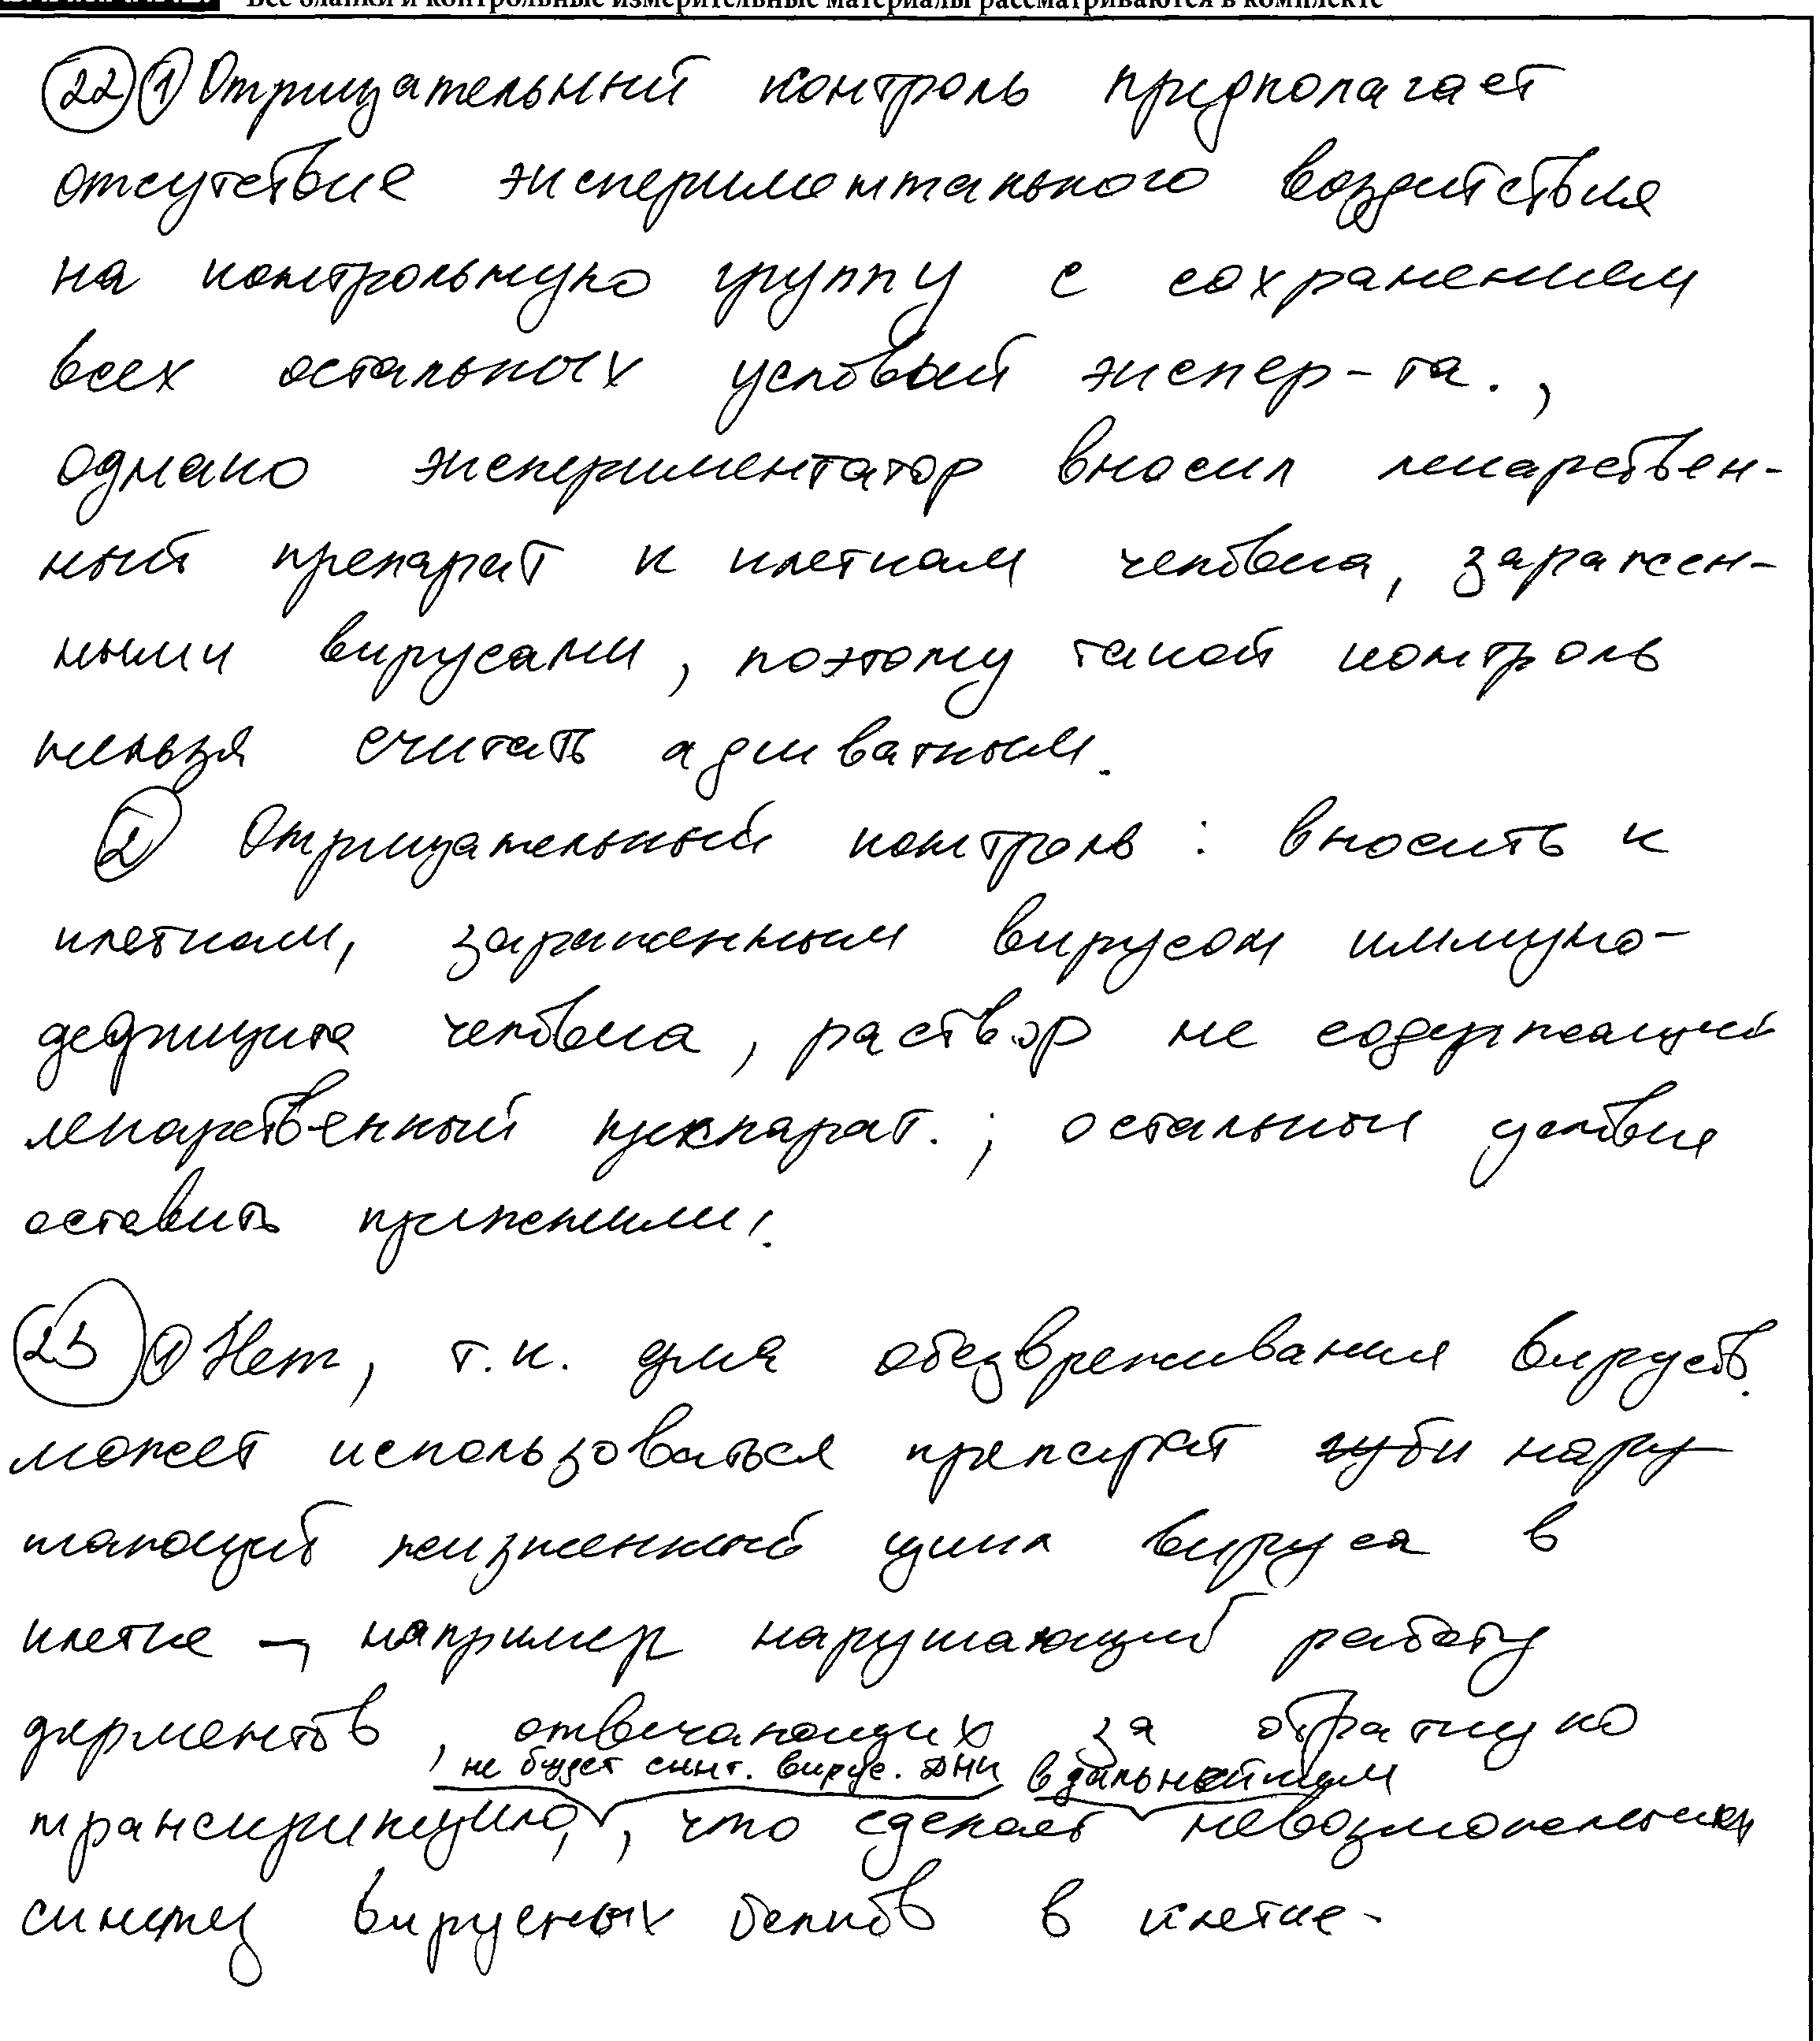 Все бланки и контрольные измерительные материалы рассматриваются в комплекте
22 1 Отрицательный контроль предполагает
отсутствие экспериментального воздействия
на контрольную группу с сохранением
всех остальных условий экспер-та.,
однако экспериментатор вносил лекарствен-
ный препарат к клеткам человека, заражен-
ными вирусами, поэтому такой контроль
нельзя считать адекватным.
2 Отрицательный контроль: вносить к
клеткам, зараженным вирусом иммуно-
дефицита человека, раствор не содержащий
лекарственный препарат.; остальные условия
оставить прежними.
23 1 Нет, т.к. для обезвреживания вирусов
может использоваться препарат нару
шающий жизненный цикл вируса в
клетке –, например нарушающий работу
ферментов, отвечающих за обратную
, не будет синт. вирус. ДНК в дальнейшем
транскрипцию, , что сделает невозможным
синтез вирусных белков в клетке.